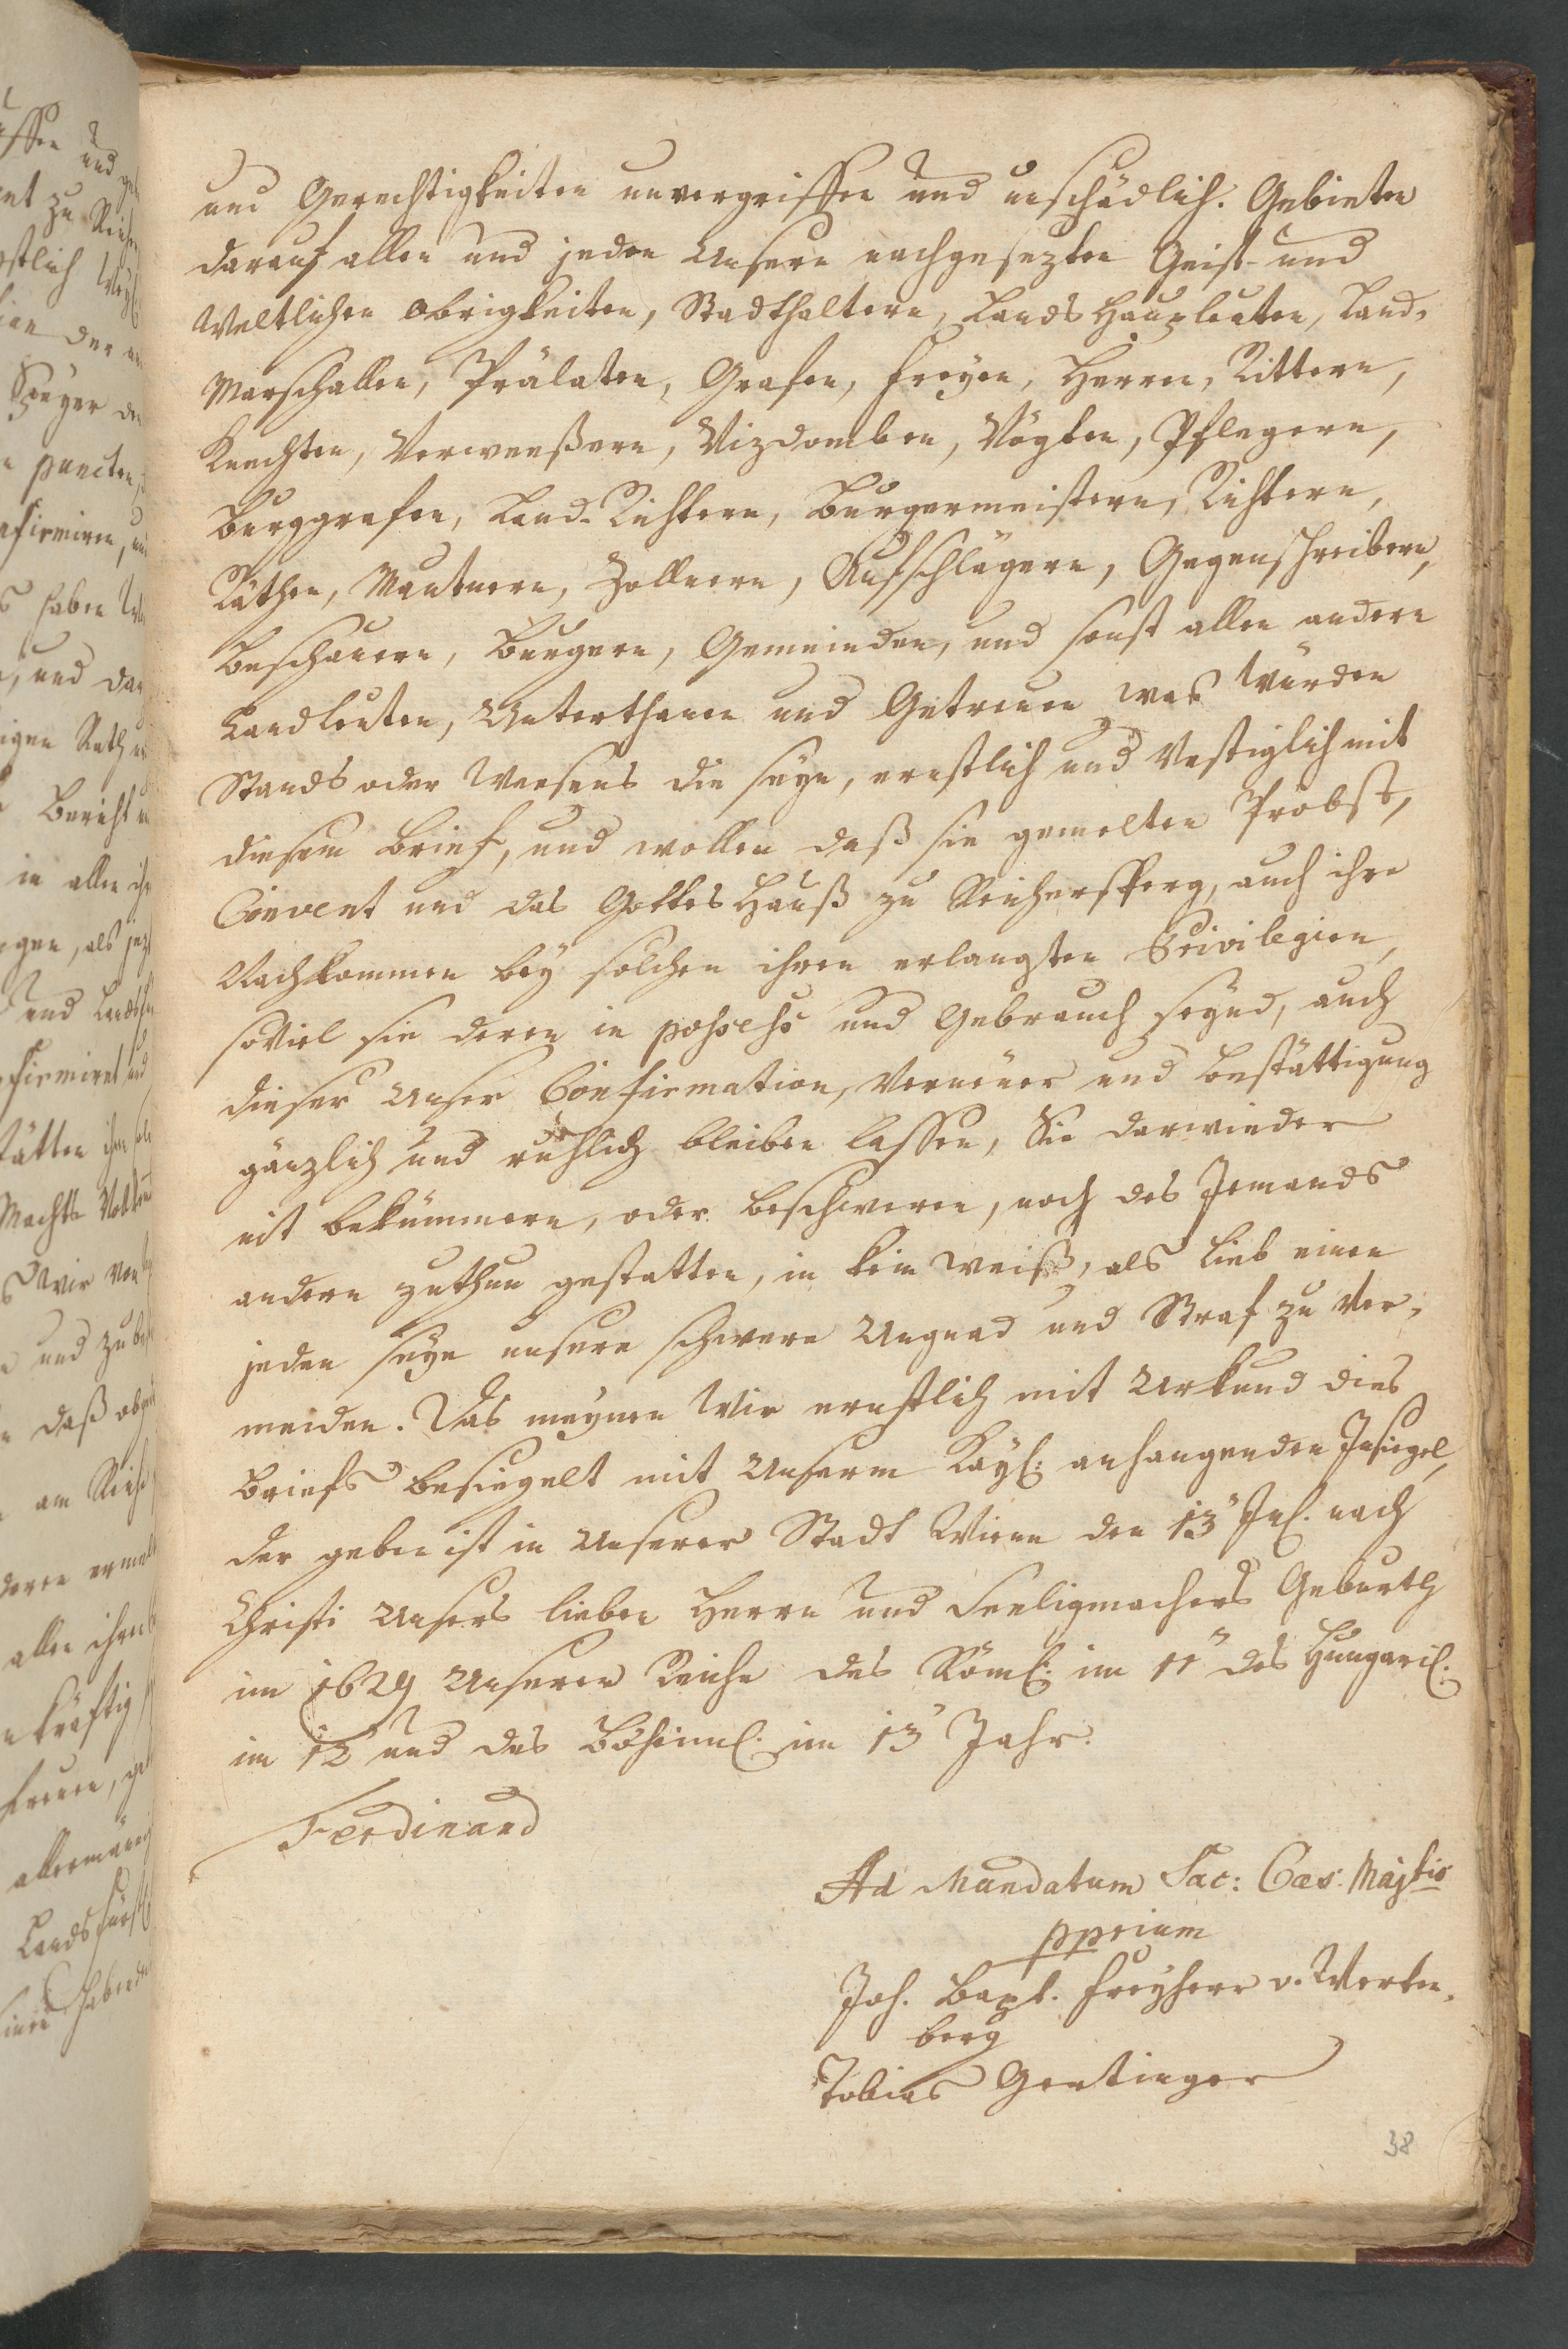 und Gerechtigkeiten unvergriffen und unschädlich. Gebieten
darauf allen und jeden Unsern nachgesezten Geist- und
Weltlichen Obrigkeiten, Stadthaltern, Lands Haupleuten, Land-
Marschallen, Prälaten, Grafen, Freyen, Herren, Rittern,
Knechten, Verweeßern, Vizdomben, Vögten, Pflegern,
Burggrafen, Land-Richtern, Burgermeistern, Richtern,
Räthen, Mautnern, Zollnern, Aufschlägern, Gegenschreibern,
Beschauern, Burgern, Gemeinden, und sonst allen andern
Landleuten, Unterthanen und Getreuen was Würden
Stands oder Weesens die seyn, ernstlich und Vestiglich mit
diesem Brief, und wollen daß sie gemelten Probst,
Convent und das Gottes Hauß zu Reichersperg, auch ihre
Nachkommen bey solchen ihren erlangten Privilegien,
soviel sie deren in possess und Gebrauch seynd, auch
dieser Unser Confirmation, Verneuer und Bestättigung
gänzlich und ruhlich bleiben lassen, Sie darwieder
nit bekümmern, oder beschweren, noch des Jemands
andern zuthun gestatten, in kein weiß, als lieb einen
jeden seye unsere schwere Ungnad und Straf zu ver-
meiden. Das meynen Wir ernstlich mit Urkund dies
Briefs besiegelt mit Unserm Kayl: anhangenden Insiegel,
der geben ist in Unserer Stadt Wienn den 13 Jul. nach
Christi Unsers lieben Herrn und Seeligmachers Geburth
im 1629 Unserer Reiche des Röml: im 11 des Hungaril:
im 12 und des Böhmil. im 13 Jahr.
Ferdinand
Ad Mandatum Sac: Caes: Majtis
pprium
Joh. Bapt. Freyherr v. Werten-
berg
Tobias Gertinger
38